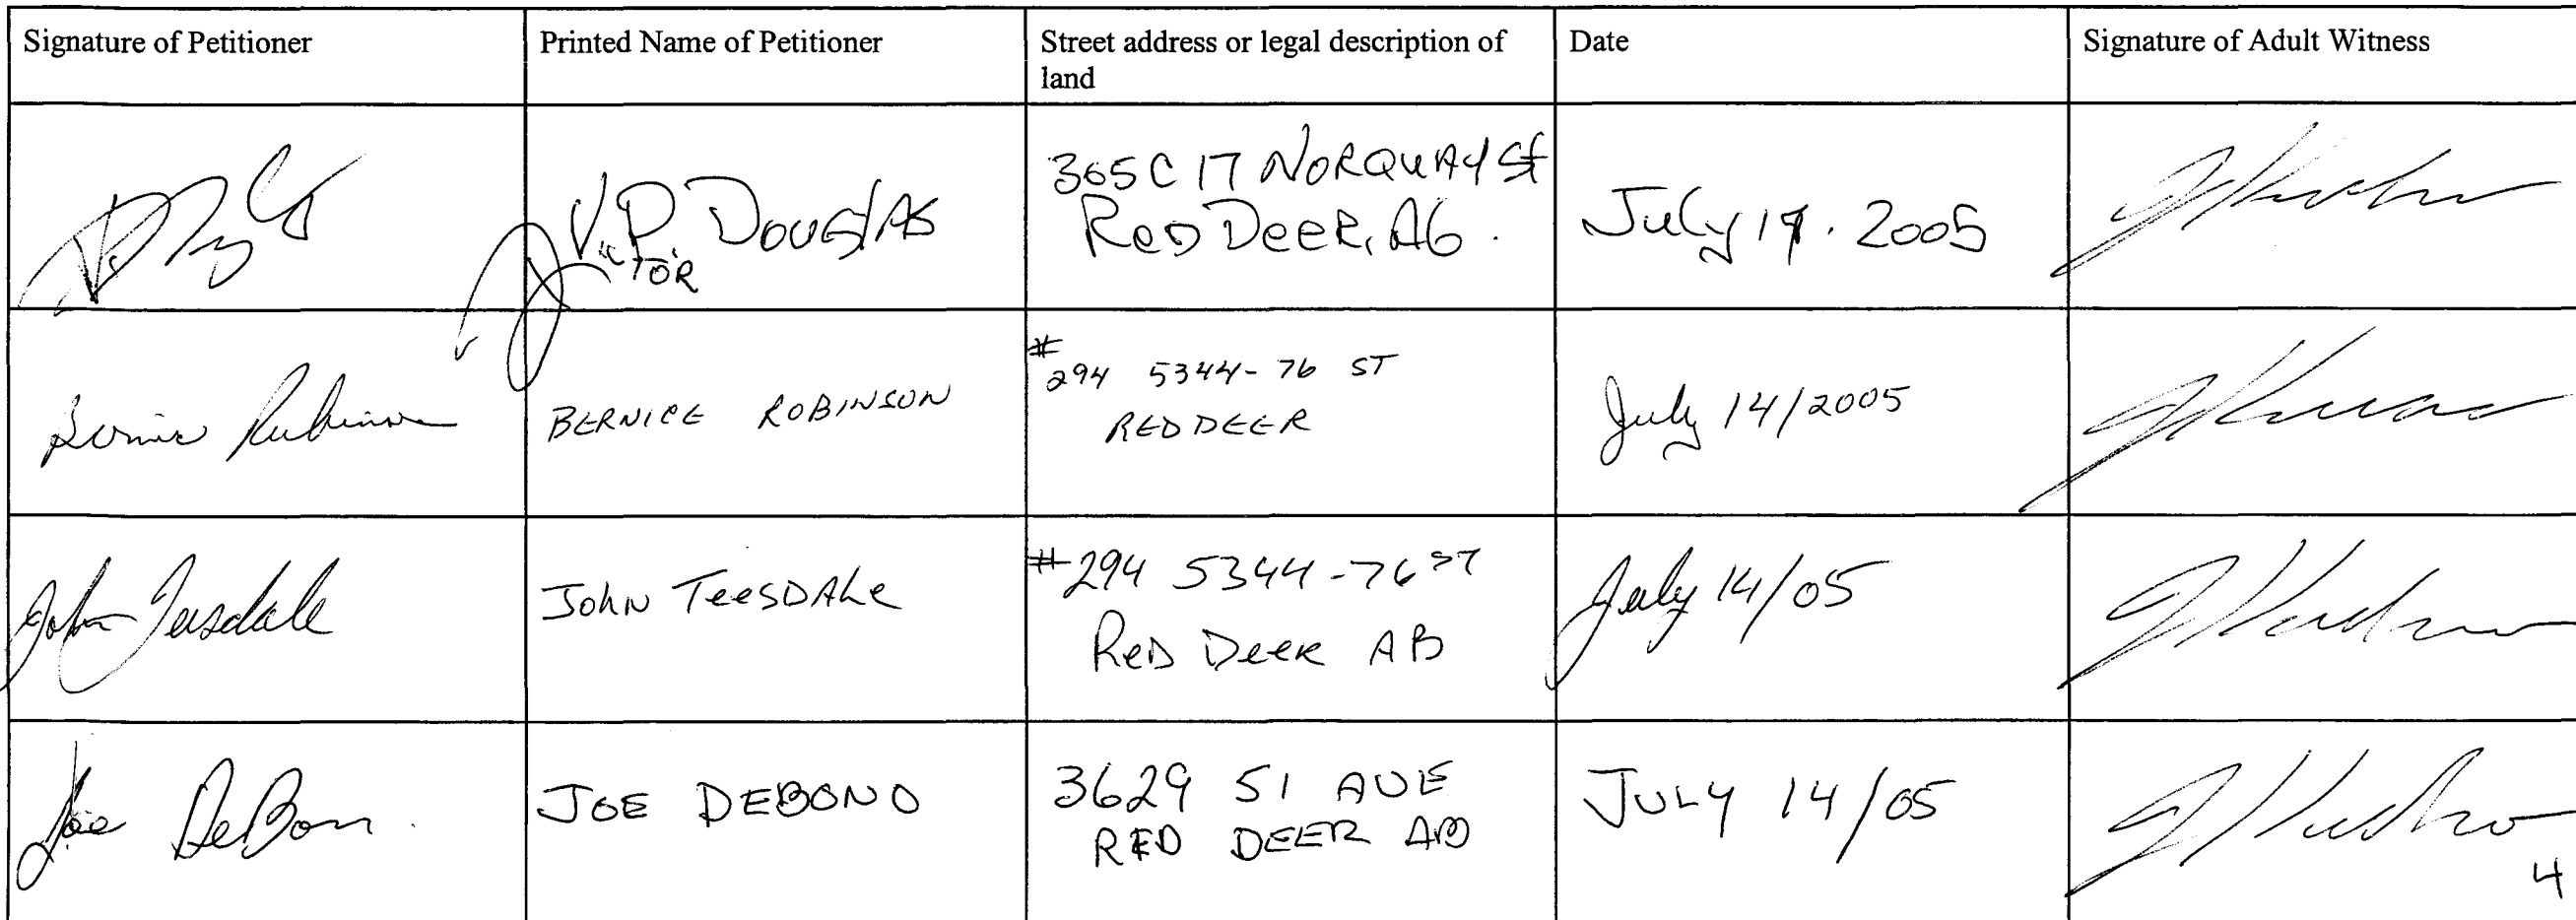 Signature of Petitioner
Printed Name of Petitioner
Street address or legal description of
land
Date
Signature of Adult Witness
V.P. DOUGLAS
ICTOR
365 C 17 NORQUAY St
RED DEER, AB.
July 2005
Bernice Robinson
BERNICE ROBINSON
#
294 5344-76 ST
RED DEER
July 14/2005
John Teesdale
JOHN TEESDALE
#294 5344-76 ST
RED DEER AB
July 14/05
Joe DeBon
JOE DEBONO
3629 51 AVE
RED DEER AB
JULY 14/05
4